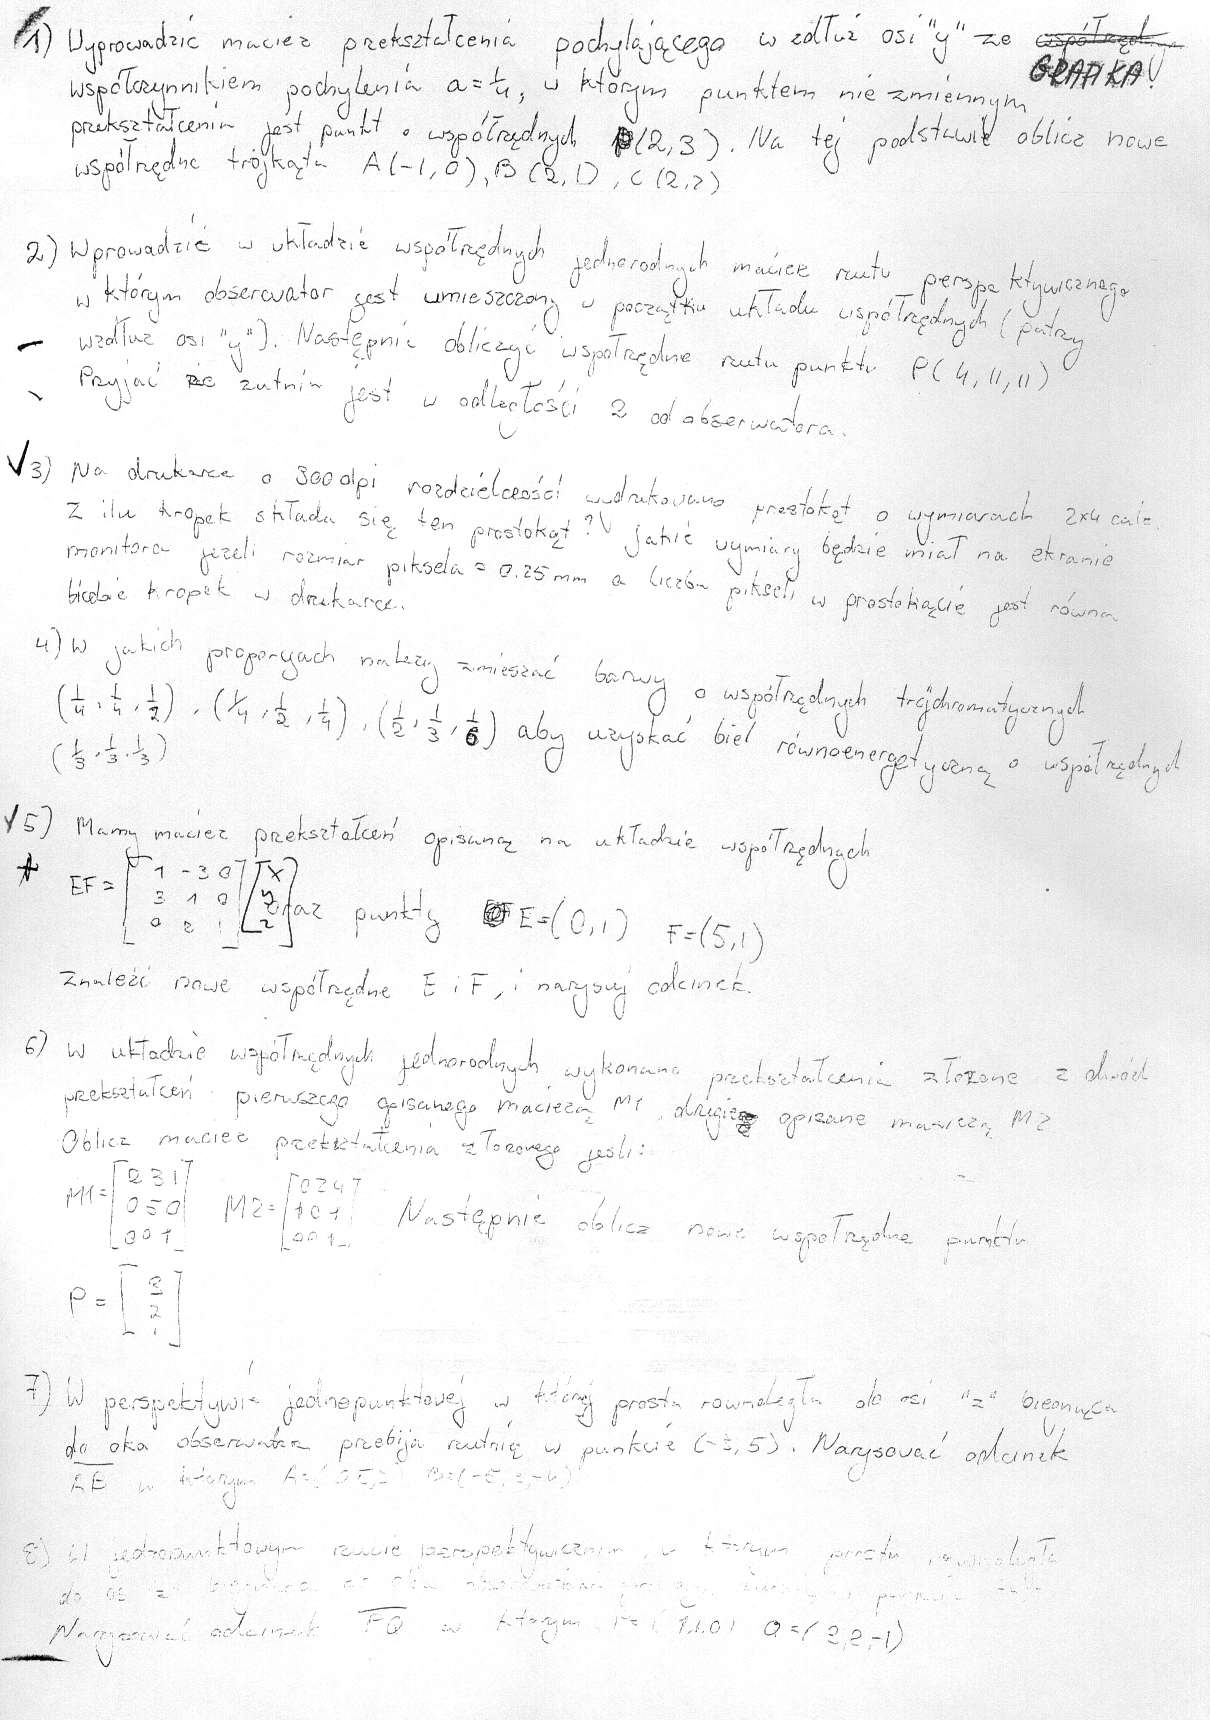 1) Wyprowadzić macierz przekształcenia pochylającego wzdłuż osi "y" ze
GRAFIKA!
współczynnikiem pochylenia a=1/4, w którym punktem nie zmiennym
przekształcenia jest punkt o współrzędnych P(2,3). Na tej podstawie oblicz nowe
współrzędne trójkąta A(-1,0), B(2,1), C(2,2)
2) Wprowadzić w układzie współrzędnych jednorodnych macierz rzutu perspektywicznego
w którym obserwator jest umieszczony w początku układu współrzędnych (patrzy
wzdłuż osi "y"). Następnie obliczyć współrzędne rzutu punktu P(4,11,11)
Przyjąć że rzutnia jest w odległości 2 od obserwatora.
3) Na drukarce o 300 dpi rozdzielczości wydrukowano prostokąt o wymiarach 2x4 cale.
Z ilu kropek składa się ten prostokąt? Jakie wymiary będzie miał na ekranie
monitora jeżeli rozmiar piksela = 0.25mm a liczba pikseli w prostokącie jest równa
liczbie kropek w drukarce.
4) W jakich proporcjach należy zmieszać barwy o współrzędnych trójchromatycznych
(1/4, 1/4, 1/2), (1/4, 1/2, 1/4), (1/2, 1/3, 1/6) aby uzyskać biel równoenergetyczną o współrzędnych
(1/3, 1/3, 1/3)
5) Mamy macierz przekształceń opisaną na układzie współrzędnych
EF = [1 -3 0] [x]
3 1 0 y oraz punkty E=(0,1) F=(5,1)
0 2 1 z
Znaleźć nowe współrzędne E i F, i narysuj odcinek.
6) W układzie współrzędnych jednorodnych wykonano przekształcenia złożone z dwóch
przekształceń pierwszego opisanego macierzą M1, drugie opisane macierzą M2
Oblicz macierz przekształcenia złożonego jeśli:
M1= [2 3 1 / 0 5 0 / 0 0 1] M2= [0 2 4 / 1 0 1 / 0 0 1] Następnie oblicz nowe współrzędne punktu
P = [3 / 2 / 1]
7) W perspektywie jednopunktowej w której prosta równoległa do osi "z" biegnąca
do oka obserwatora przebija rzutnię w punkcie (-3,5). Narysować odcinek
w którym
8) W jednopunktowym rzucie perspektywicznym, w którym prosta równoległa
do osi z biegnąca do oka obserwatora
Narysować odcinek PQ w którym P=(1,1,0) Q=(2,2,-1)